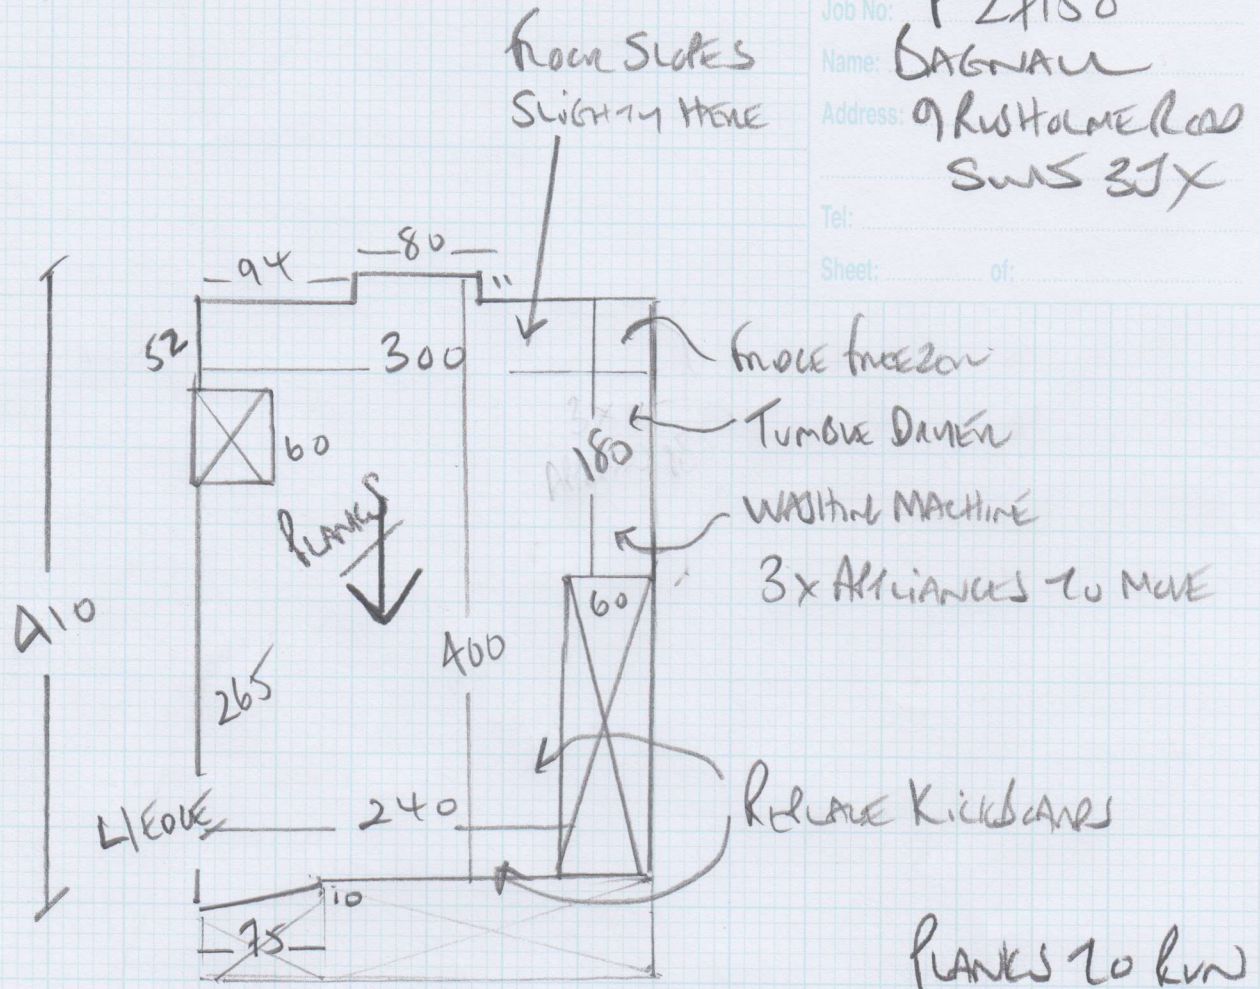 Job No: P 27150
Name: BAGNALL
Address: 9 RUSHOLME ROAD
SW15 3JX
Tel:
Sheet: of:
FLOOR SLOPES
SLIGHTLY HERE
80
94
11
52
300
FRIDGE FREEZER
TUMBLE DRYER
60
180
PLANKS
WASHING MACHINE
3x APPLIANCES TO MOVE
60
410
400
265
L/EDGE
240
REPLACE KICKBOARDS
10
75
PLANKS TO RUN